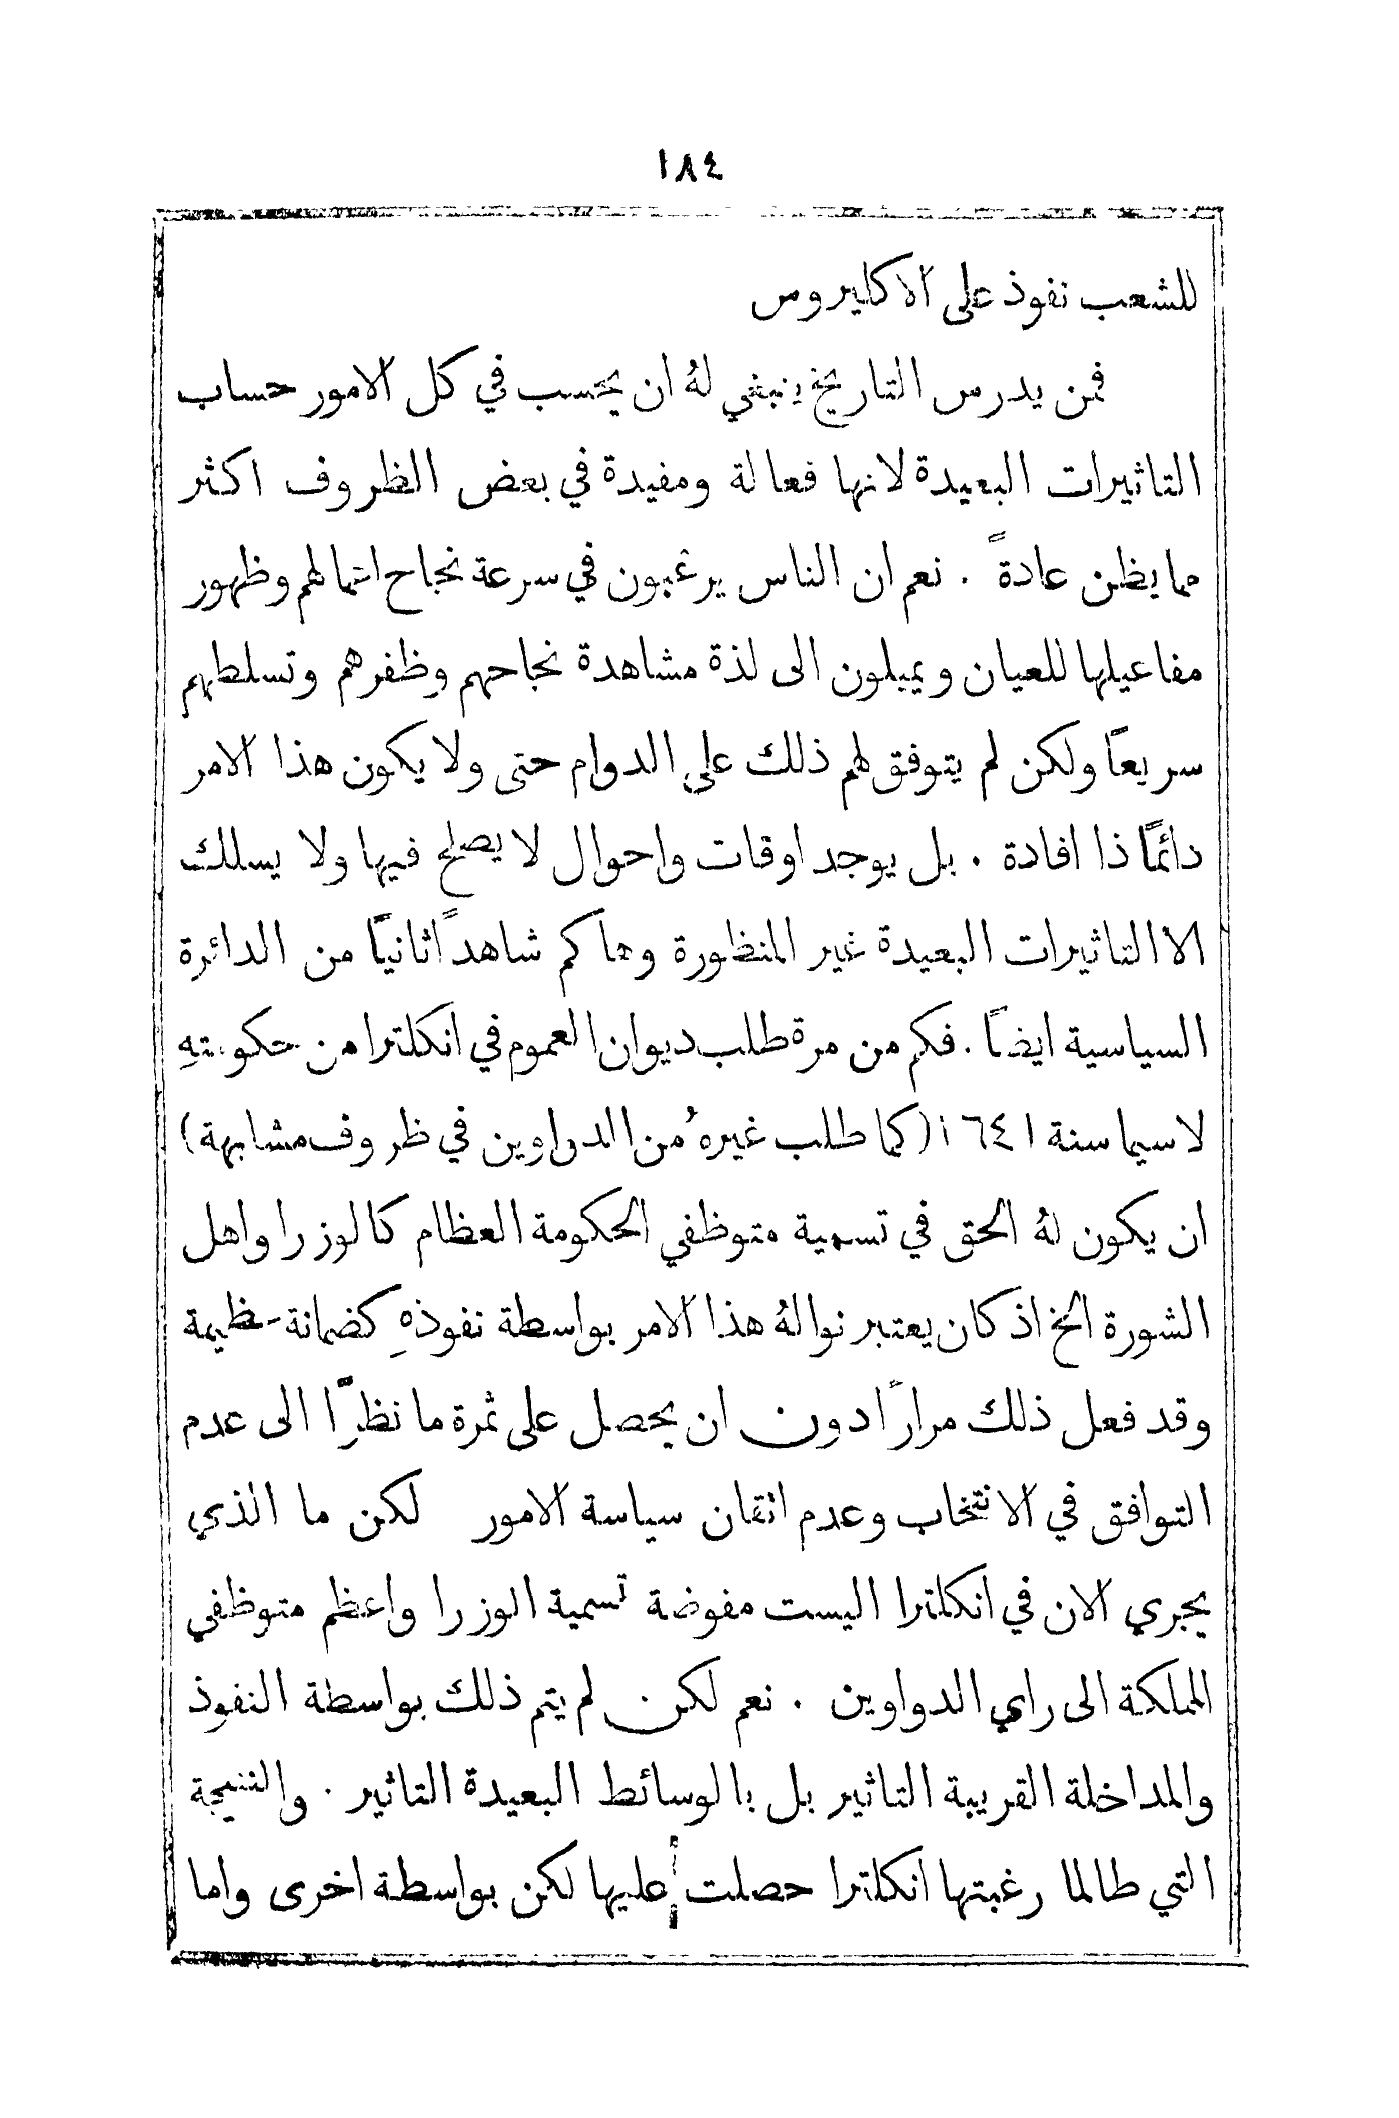 ١٨٤
للشعب نفوذ على الاكليروس
فمن يدرس التاريخ ينبغي لهُ ان يحسب في كل الامور حساب
التاثيرات البعيدة لانها فعالة ومفيدة في بعض الظروف اكثر
مما يظن عادةً . نعم ان الناس يرغبون في سرعة نجاح اعمالهم وظهور
مفاعيلها للعيان ويميلون الى لذة مشاهدة نجاحهم وظفرهم وتسلطهم
سريعاً ولكن لم يتوفق لهم ذلك على الدوام حتى ولا يكون هذا الامر
دائماً ذا افادة . بل يوجد اوقات واحوال لا يصلح فيها ولا يسلك
الا التاثيرات البعيدة غير المنظورة وهاكم شاهداً ثانياً من الدائرة
السياسية ايضاً . فكم من مرة طلب ديوان العموم في انكلترا من حكومتهِ
لاسيما سنة ١٦٤١ (كما طلب غيرهُ من الدواوين في ظروف مشابهة)
ان يكون لهُ الحق في تسمية متوظفي الحكومة العظام كالوزرا واهل
الشورة الخ اذ كان يعتبر نوالهُ هذا الامر بواسطة نفوذهِ كضمانة عظيمة
وقد فعل ذلك مراراً دون ان يحصل على ثمرة ما نظرًا الى عدم
التوافق في الانتخاب وعدم اتقان سياسة الامور لكن ما الذي
يجري الان في انكلترا اليست مفوضة تسمية الوزرا واعظم متوظفي
المملكة الى راي الدواوين . نعم لكن لم يتم ذلك بواسطة النفوذ
والمداخلة القريبة التاثير بل بالوسائط البعيدة التاثير . والنتيجة
التي طالما رغبتها انكلترا حصلت عليها لكن بواسطة اخرى واما